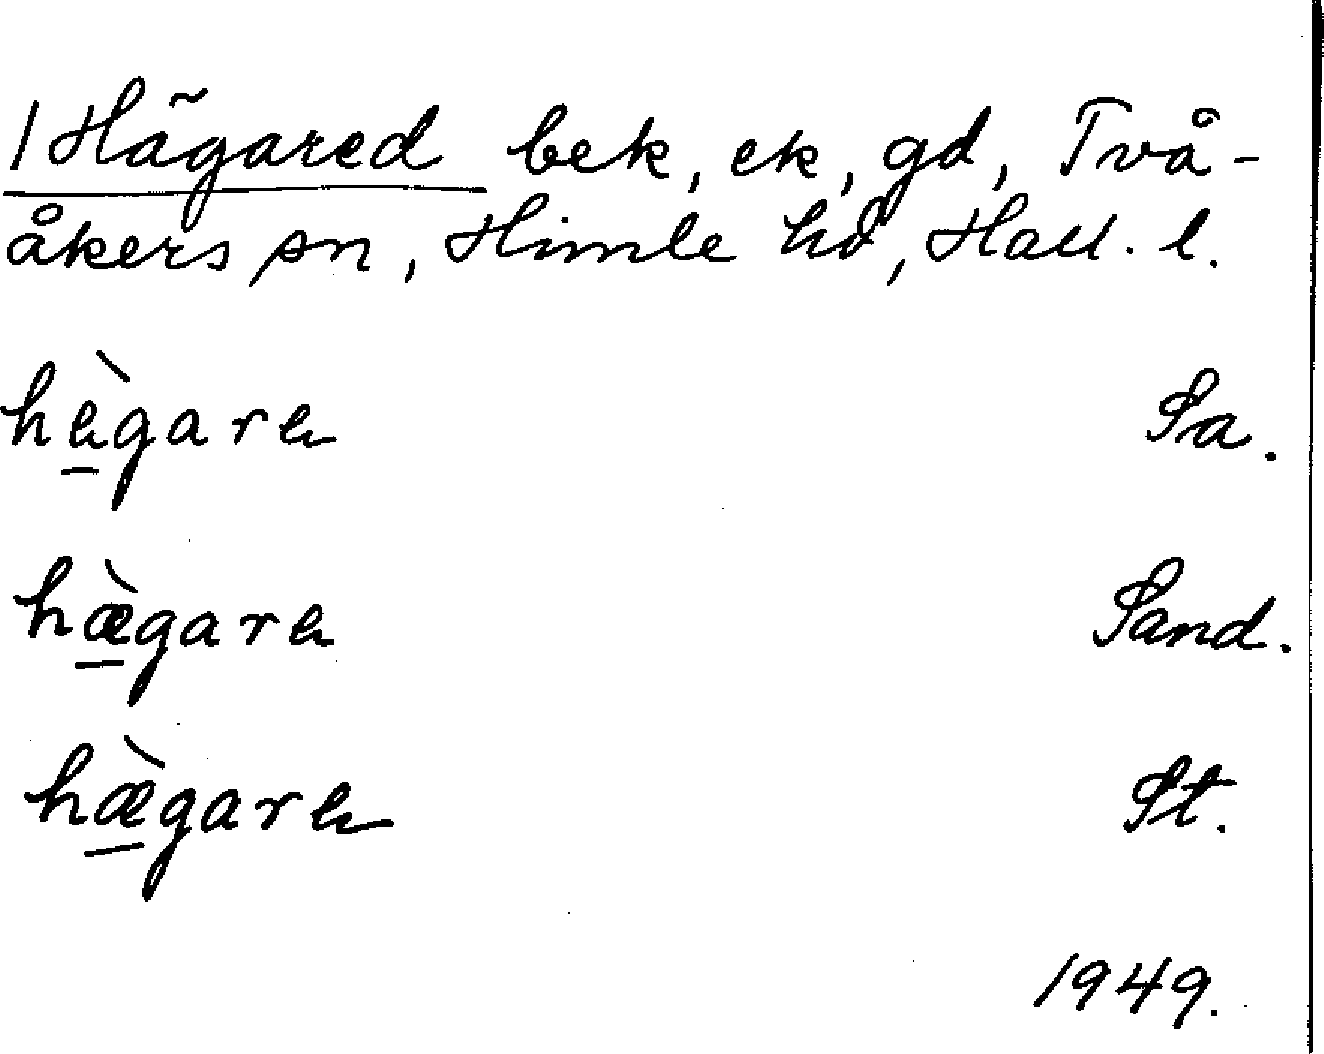 1 Hägared bek, ek, gd, Två-
åkers sn, Himle hd, Hall. l.
hègare Sa.
hæ̀gare Sand.
hæ̀gare St.
1949.